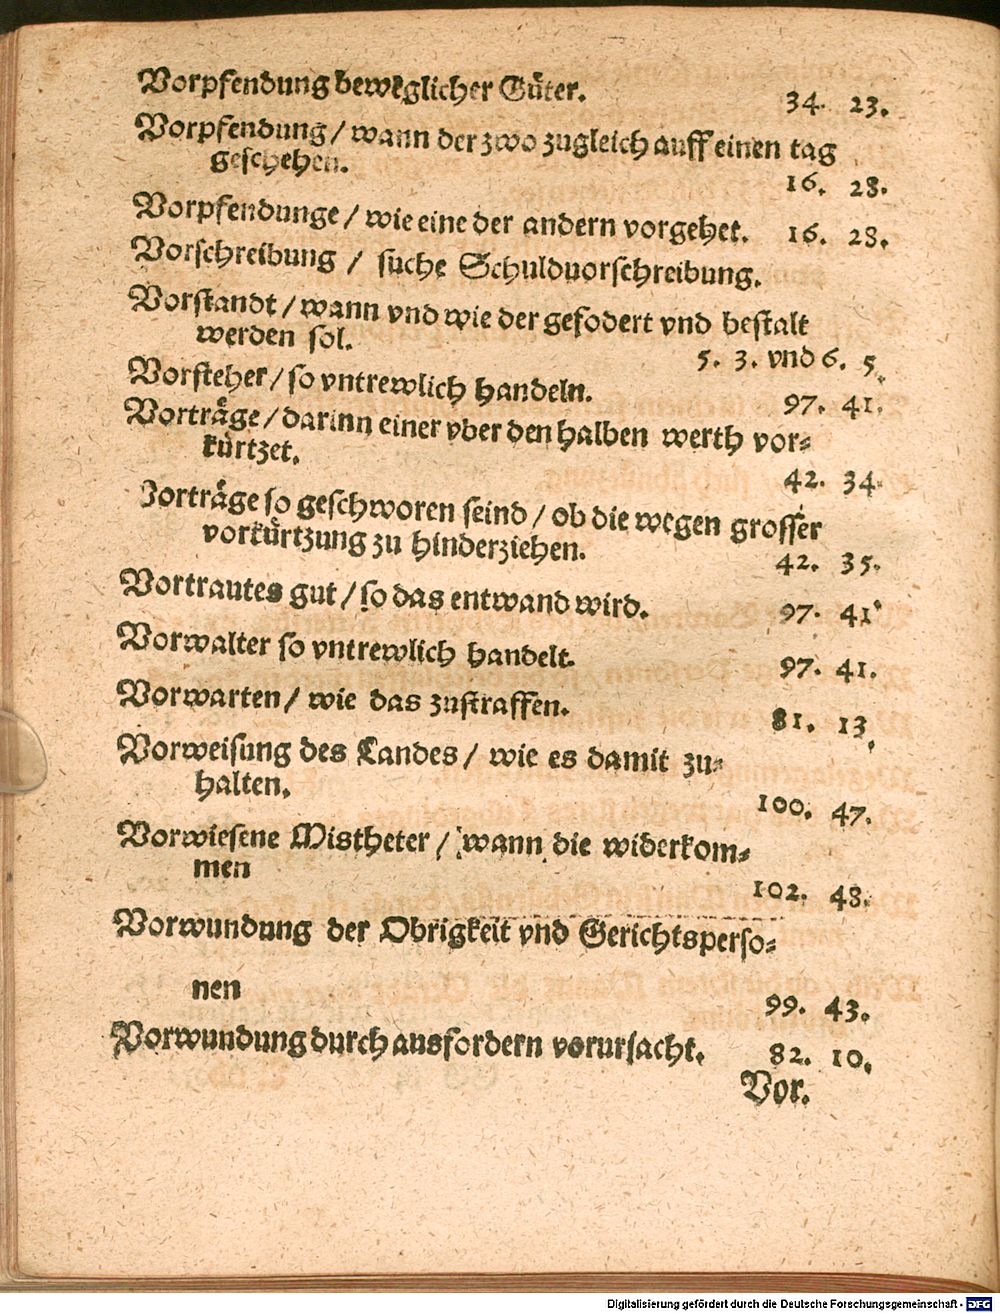 Vorpfendung beweglicher Güter. 34. 23.
Vorpfendung / wann der zwo zugleich auff einen tag
geschehen. 16. 28.
Vorpfendunge / wie eine der andern vorgehet. 16. 28.
Vorschreibung / suche Schuldvorschreibung.
Vorstandt / wann vnd wie der gefodert vnd bestalt
werden sol. 5. 3. vnd 6. 5.
Vorsteher / so vntrewlich handeln. 97. 41.
Vorträge / darinn einer vber den halben werth vor-
kürtzet. 42. 34.
Vorträge so geschworen seind / ob die wegen grosser
vorkürtzung zu hinderziehen. 42. 35.
Vortrautes gut / so das entwand wird. 97. 41.
Vorwalter so vntrewlich handelt. 97. 41.
Vorwarten / wie das zustraffen. 81. 13.
Vorweisung des Landes / wie es damit zu-
halten. 100. 47.
Vorwiesene Mistheter / wann die widerkom-
men 102. 48.
Vorwundung der Obrigkeit vnd Gerichtsperso-
nen 99. 43.
Vorwundung durch ausfordern vorursacht. 82. 10.
Vor.
Digitalisierung gefördert durch die Deutsche Forschungsgemeinschaft - DFG